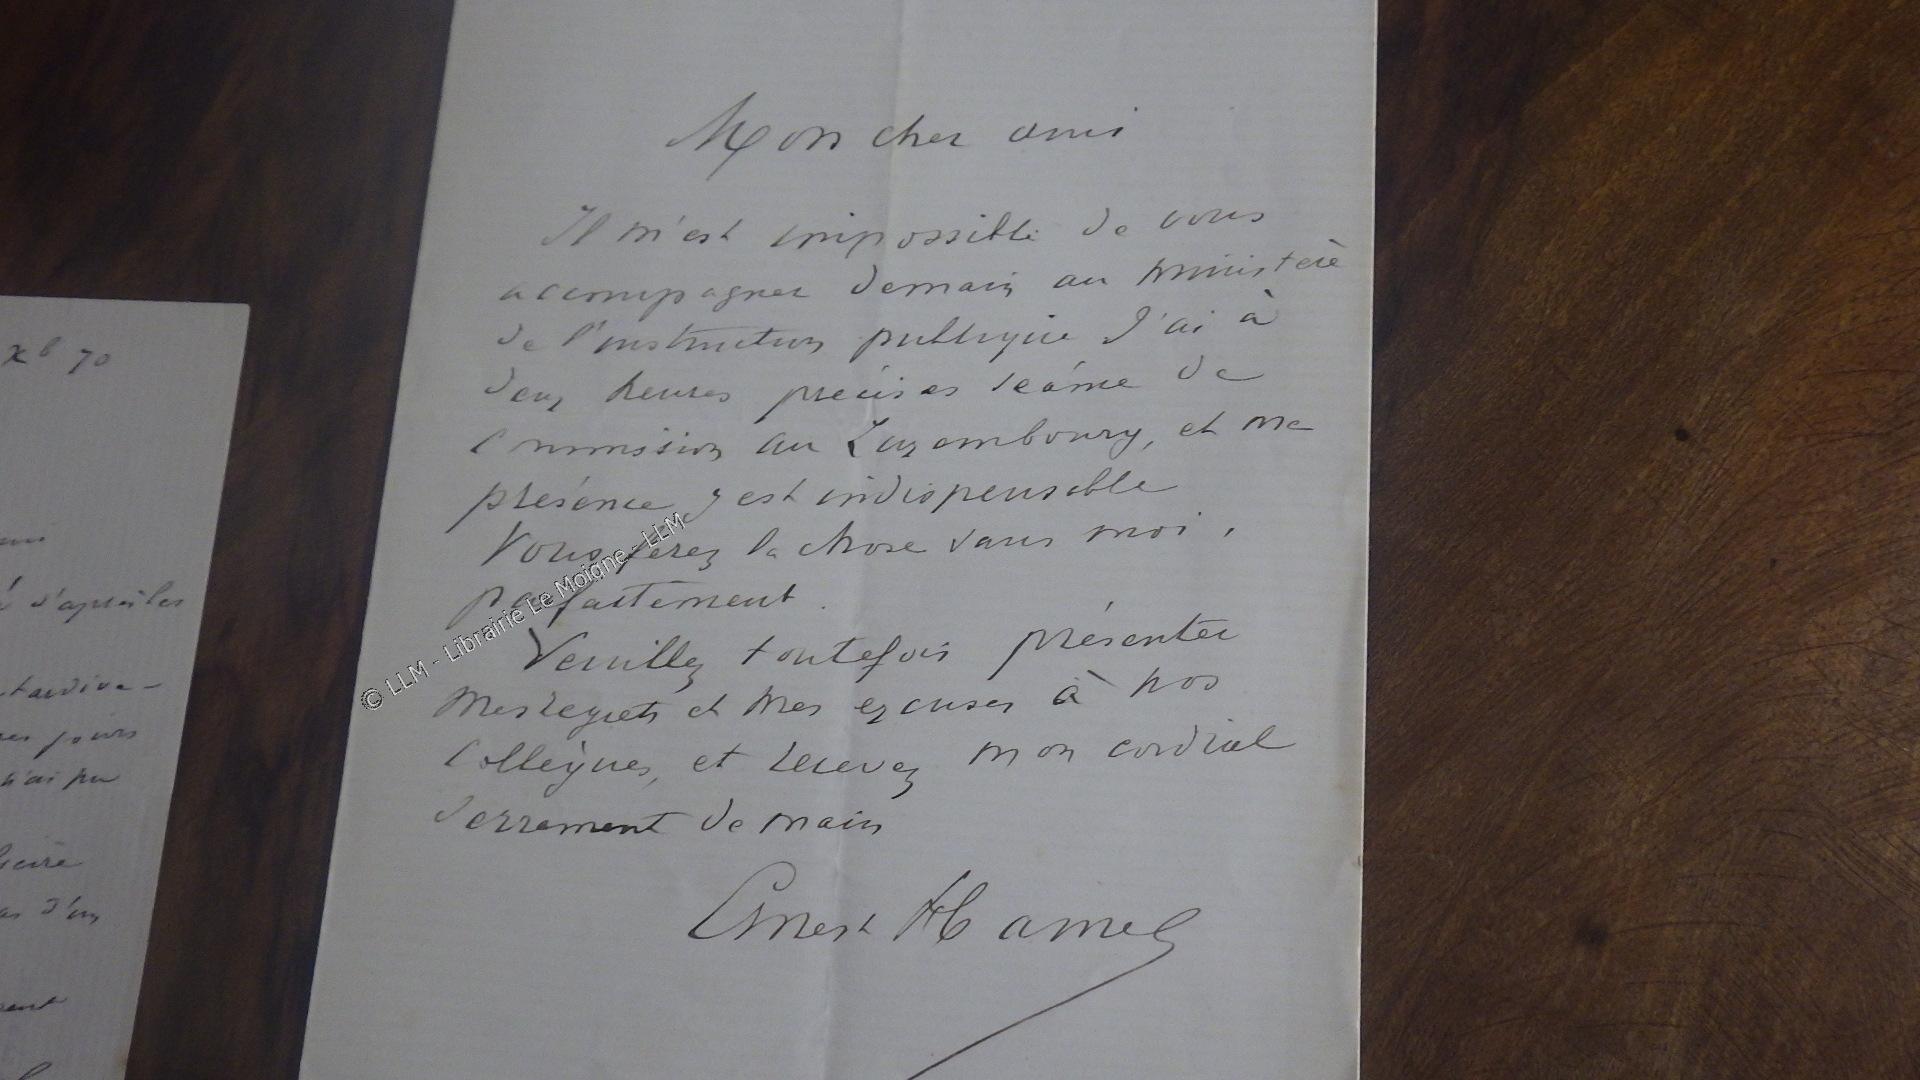 Mon cher ami
Il m'est impossible de vous
accompagner demain au ministère
de l'instruction publique J'ai à
deux heures précises séance de
commission au Luxembourg, et ma
présence y est indispensable
Vous ferez la chose sans moi,
parfaitement.
Veuillez toutefois présenter
mes regrets et mes excuses à nos
collègues, et recevez mon cordial
serrement de main
Ernest Hamel
© LLM - Librairie Le Moigne - LLM
Xb 70
d'après les
tardive-
jours
n'ai pu
d'un